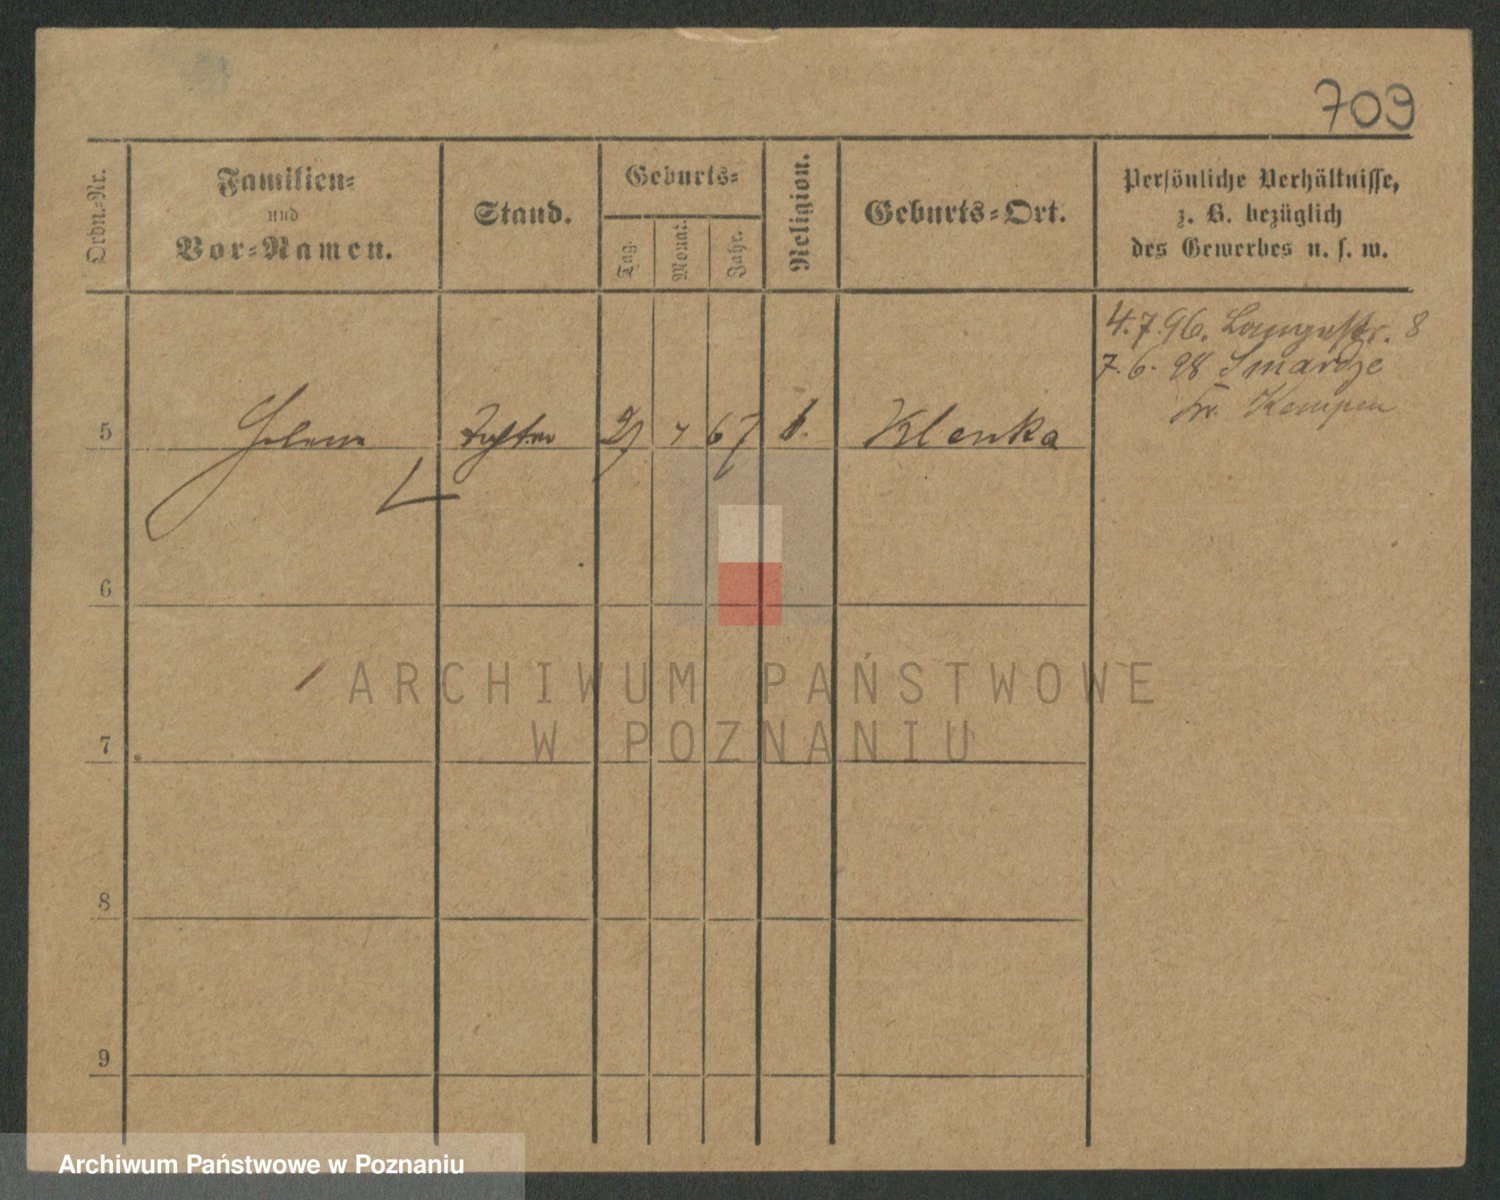 709
Ordn.-Nr.
Familien-
und
Vor-Namen.
Stand.
Geburts-
Tag.
Monat.
Jahr.
Religion.
Geburts-Ort.
Persönliche Verhältnisse,
z. B. bezüglich
des Gewerbes u. s. w.
4.7.96. Langestr. 8
7.6.98 Smardze
Kr. Kempen
5 Helene Tochter 67 Klenka
6
7
8
9
ARCHIWUM PAŃSTWOWE
W POZNANIU
Archiwum Państwowe w Poznaniu